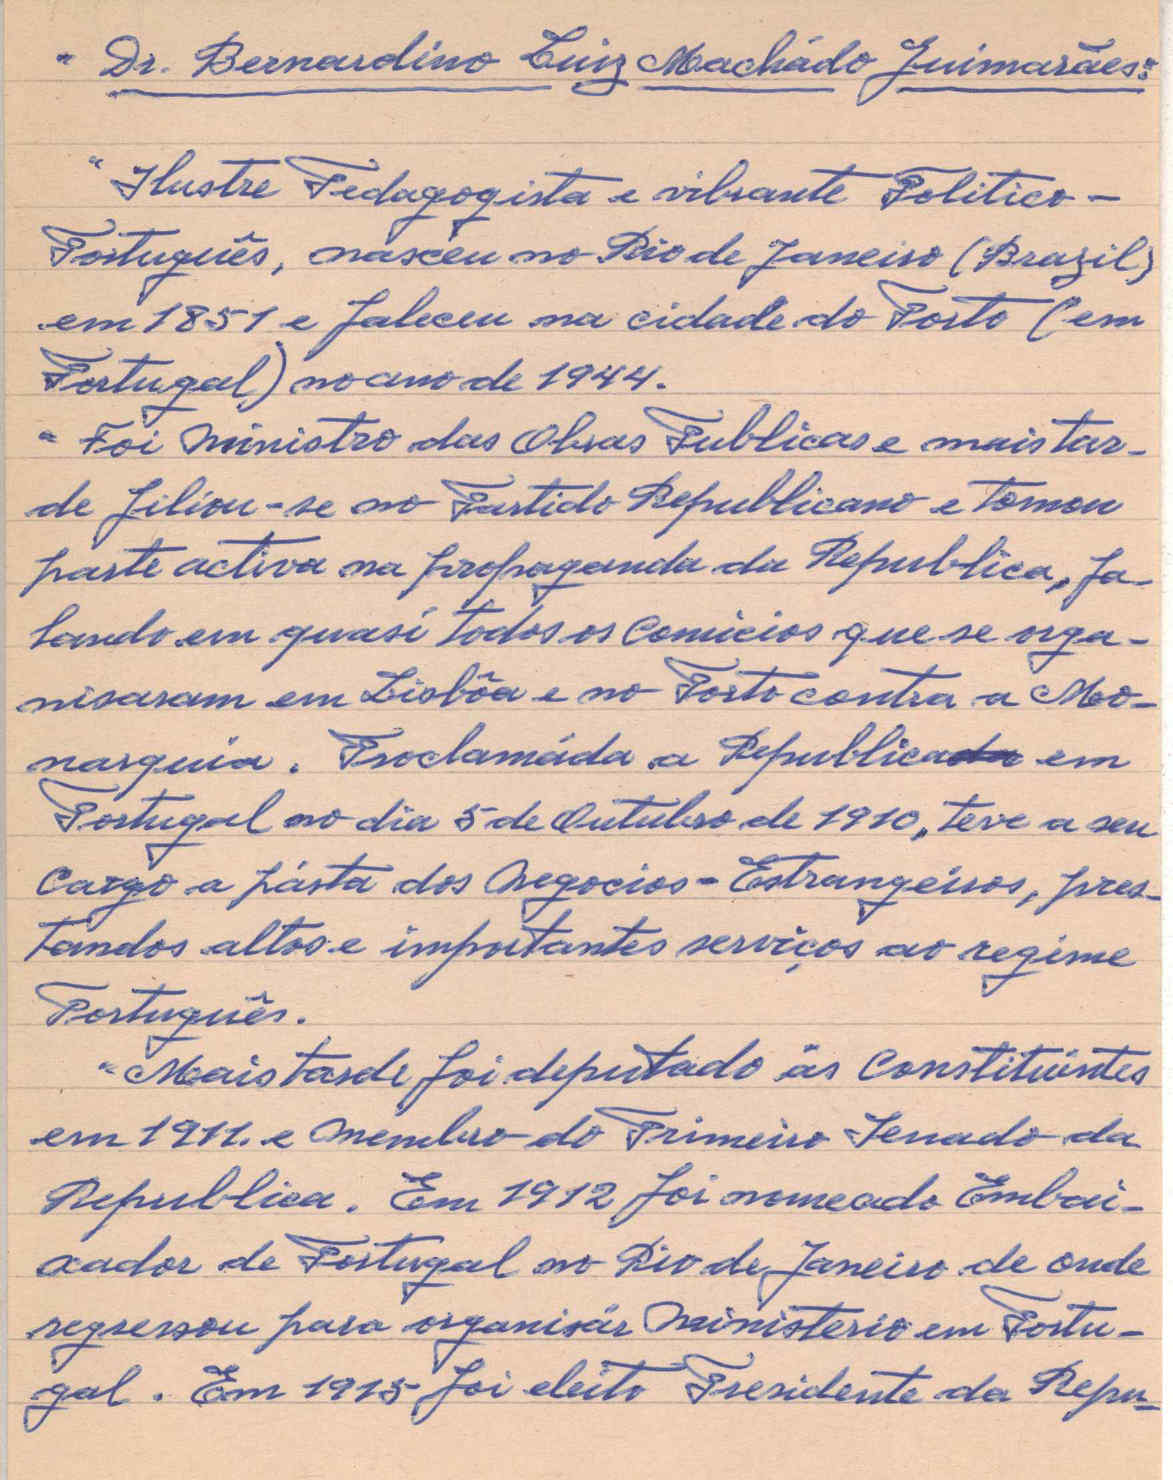 " Dr. Bernardino Luiz Machádo Guimarães:"
"Ilustre Pedagogista e vibrante Politico-
Português, nasceu no Rio de Janeiro (Brazil)
em 1851 e faleceu na cidade do Porto (em
Portugal) no ano de 1944.
" Foi Ministro das Obras Publicas e mais tar-
de filiou-se no Partido Republicano e tomou
parte activa na propaganda da Republica, fa-
lando em quasi todos os comicios que se orga-
nisaram em Lisbôa e no Porto contra a Mo-
narquia. Proclamáda a Republica em
Portugal no dia 5 de Outubro de 1910, teve a seu
cargo a pásta dos Negocios-Estrangeiros, pres-
tandos altos e importantes serviços ao regime
Português.
"Mais tarde foi deputado ás Constituintes
em 1911. e membro do Primeiro Senado da
Republica. Em 1912 foi nomeado Embai-
xador de Portugal no Rio de Janeiro de onde
regressou para organisár Ministerio em Portu-
gal. Em 1915 foi eleito Presidente da Repu-